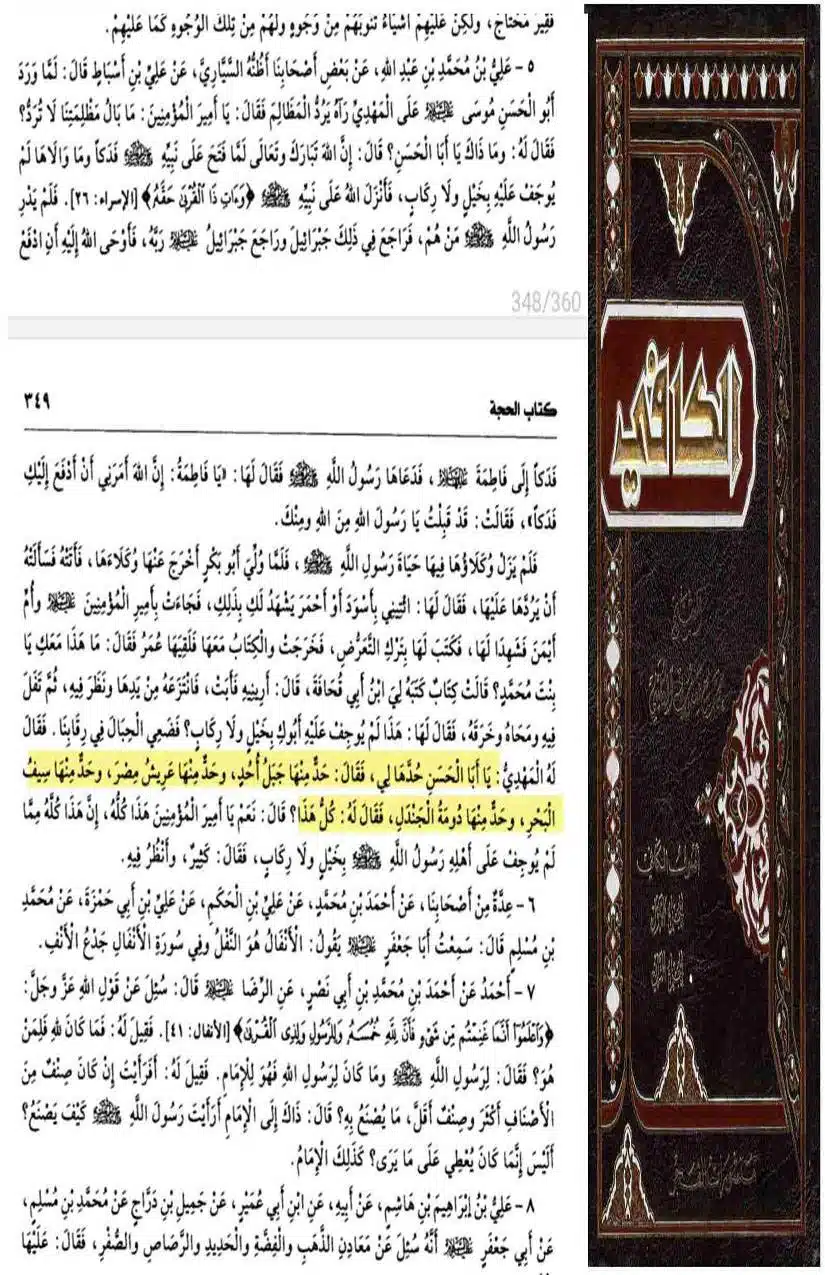 فَقِيرٌ مُحْتَاجٌ، ولَكِنْ عَلَيْهِمْ أَشْيَاءُ تَنُوبُهُمْ مِنْ وُجُوهٍ ولَهُمْ مِنْ تِلْكَ الْوُجُوهِ كَمَا عَلَيْهِمْ.
٥ - عَلِيُّ بْنُ مُحَمَّدِ بْنِ عَبْدِ اللهِ، عَنْ بَعْضِ أَصْحَابِنَا أَظُنُّهُ السَّيَّارِيَّ، عَنْ عَلِيِّ بْنِ أَسْبَاطٍ قَالَ: لَمَّا وَرَدَ
أَبُو الْحَسَنِ مُوسَى عَلَيْهِ السَّلَامُ عَلَى الْمَهْدِيِّ رَآهُ يَرُدُّ الْمَظَالِمَ فَقَالَ: يَا أَمِيرَ الْمُؤْمِنِينَ: مَا بَالُ مَظْلِمَتِنَا لَا تُرَدُّ؟
فَقَالَ لَهُ: ومَا ذَاكَ يَا أَبَا الْحَسَنِ؟ قَالَ: إِنَّ اللهَ تَبَارَكَ وتَعَالَى لَمَّا فَتَحَ عَلَى نَبِيِّهِ ﷺ فَدَكاً ومَا وَالَاهَا لَمْ
يُوجَفْ عَلَيْهِ بِخَيْلٍ ولَا رِكَابٍ، فَأَنْزَلَ اللهُ عَلَى نَبِيِّهِ ﷺ ﴿وَءَاتِ ذَا ٱلْقُرْبَىٰ حَقَّهُ﴾ [الإسراء: ٢٦]. فَلَمْ يَدْرِ
رَسُولُ اللَّهِ ﷺ مَنْ هُمْ، فَرَاجَعَ فِي ذَلِكَ جَبْرَائِيلَ ورَاجَعَ جَبْرَائِيلُ عَلَيْهِ السَّلَامُ رَبَّهُ، فَأَوْحَى اللهُ إِلَيْهِ أَنِ ادْفَعْ
348/360
كتاب الحجة ٣٤٩
فَدَكاً إِلَى فَاطِمَةَ عَلَيْهَا السَّلَامُ، فَدَعَاهَا رَسُولُ اللَّهِ ﷺ فَقَالَ لَهَا: «يَا فَاطِمَةُ: إِنَّ اللهَ أَمَرَنِي أَنْ أَدْفَعَ إِلَيْكِ
فَدَكاً»، فَقَالَتْ: قَدْ قَبِلْتُ يَا رَسُولَ اللهِ مِنَ اللهِ ومِنْكَ.
فَلَمْ يَزَلْ وُكَلَاؤُهَا فِيهَا حَيَاةَ رَسُولِ اللهِ ﷺ، فَلَمَّا وُلِّيَ أَبُو بَكْرٍ أَخْرَجَ عَنْهَا وُكَلَاءَهَا، فَأَتَتْهُ فَسَأَلَتْهُ
أَنْ يَرُدَّهَا عَلَيْهَا، فَقَالَ لَهَا: ائْتِينِي بِأَسْوَدَ أَوْ أَحْمَرَ يَشْهَدُ لَكِ بِذَلِكِ، فَجَاءَتْ بِأَمِيرِ الْمُؤْمِنِينَ عَلَيْهِ السَّلَامُ وأُمِّ
أَيْمَنَ فَشَهِدَا لَهَا، فَكَتَبَ لَهَا بِتَرْكِ التَّعَرُّضِ، فَخَرَجَتْ والْكِتَابُ مَعَهَا فَلَقِيَهَا عُمَرُ فَقَالَ: مَا هَذَا مَعَكِ يَا
بِنْتَ مُحَمَّدٍ؟ قَالَتْ كِتَابٌ كَتَبَهُ لِيَ ابْنُ أَبِي قُحَافَةَ، قَالَ: أَرِينِيهِ فَأَبَتْ، فَانْتَزَعَهُ مِنْ يَدِهَا ونَظَرَ فِيهِ، ثُمَّ تَفَلَ
فِيهِ ومَحَاهُ وخَرَقَهُ، فَقَالَ لَهَا: هَذَا لَمْ يُوجِفْ عَلَيْهِ أَبُوكِ بِخَيْلٍ ولَا رِكَابٍ؟ فَضَعِي الْحِبَالَ فِي رِقَابِنَا. فَقَالَ
لَهُ الْمَهْدِيُّ: يَا أَبَا الْحَسَنِ حُدَّهَا لِي، فَقَالَ: حَدٌّ مِنْهَا جَبَلُ أُحُدٍ، وحَدٌّ مِنْهَا عَرِيشُ مِصْرَ، وحَدٌّ مِنْهَا سِيفُ
الْبَحْرِ، وحَدٌّ مِنْهَا دُومَةُ الْجَنْدَلِ، فَقَالَ لَهُ: كُلُّ هَذَا؟ قَالَ: نَعَمْ يَا أَمِيرَ الْمُؤْمِنِينَ هَذَا كُلُّهُ، إِنَّ هَذَا كُلَّهُ مِمَّا
لَمْ يُوجِفْ عَلَى أَهْلِهِ رَسُولُ اللهِ ﷺ بِخَيْلٍ ولَا رِكَابٍ، فَقَالَ: كَثِيرٌ، وأَنْظُرُ فِيهِ.
٦ - عِدَّةٌ مِنْ أَصْحَابِنَا، عَنْ أَحْمَدَ بْنِ مُحَمَّدٍ، عَنْ عَلِيِّ بْنِ الْحَكَمِ، عَنْ عَلِيِّ بْنِ أَبِي حَمْزَةَ، عَنْ مُحَمَّدِ
بْنِ مُسْلِمٍ قَالَ: سَمِعْتُ أَبَا جَعْفَرٍ عَلَيْهِ السَّلَامُ يَقُولُ: الْأَنْفَالُ هُوَ النَّفْلُ وفِي سُورَةِ الْأَنْفَالِ جَدْعُ الْأَنْفِ.
٧ - أَحْمَدُ عَنْ أَحْمَدَ بْنِ مُحَمَّدِ بْنِ أَبِي نَصْرٍ، عَنِ الرِّضَا عَلَيْهِ السَّلَامُ قَالَ: سُئِلَ عَنْ قَوْلِ اللهِ عَزَّ وجَلَّ:
﴿وَٱعْلَمُوٓا۟ أَنَّمَا غَنِمْتُم مِّن شَىْءٍ فَأَنَّ لِلَّهِ خُمُسَهُۥ وَلِلرَّسُولِ وَلِذِى ٱلْقُرْبَىٰ﴾ [الأنفال: ٤١]. فَقِيلَ لَهُ: فَمَا كَانَ لِلهِ فَلِمَنْ
هُوَ؟ فَقَالَ: لِرَسُولِ اللَّهِ ﷺ ومَا كَانَ لِرَسُولِ اللهِ فَهُوَ لِلْإِمَامِ. فَقِيلَ لَهُ: أَفَرَأَيْتَ إِنْ كَانَ صِنْفٌ مِنَ
الْأَصْنَافِ أَكْثَرَ وصِنْفٌ أَقَلَّ، مَا يُصْنَعُ بِهِ؟ قَالَ: ذَاكَ إِلَى الْإِمَامِ أَرَأَيْتَ رَسُولَ اللَّهِ ﷺ كَيْفَ يَصْنَعُ؟
أَلَيْسَ إِنَّمَا كَانَ يُعْطِي عَلَى مَا يَرَى؟ كَذَلِكَ الْإِمَامُ.
٨ - عَلِيُّ بْنُ إِبْرَاهِيمَ بْنِ هَاشِمٍ، عَنْ أَبِيهِ، عَنِ ابْنِ أَبِي عُمَيْرٍ، عَنْ جَمِيلِ بْنِ دَرَّاجٍ عَنْ مُحَمَّدِ بْنِ مُسْلِمٍ،
عَنْ أَبِي جَعْفَرٍ عَلَيْهِ السَّلَامُ أَنَّهُ سُئِلَ عَنْ مَعَادِنِ الذَّهَبِ والْفِضَّةِ والْحَدِيدِ والرَّصَاصِ والصُّفْرِ، فَقَالَ: عَلَيْهَا
الكافي